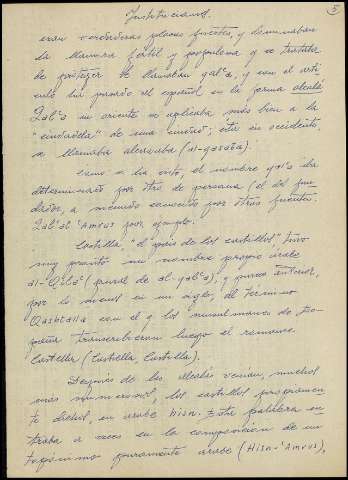 Instituciones.
5
eran verdaderas plazas fuertes, y dominaban
la llanura fértil y populosa q se trataba
de proteger se llamaban qal'a, y con el artí
culo ha pasado al español en la forma alcalá
Qal'a en oriente se aplicaba más bien a la
"ciudadela" de una ciudad; ésta en occidente,
se llamaba alcazaba (al-qasaba).
Como se ha visto, el nombre qal'a iba
determinado por otro de persona (el del fun
dador, a menudo conocido por otras fuentes.
Qal'at 'Amrus por ejemplo.
Castilla, "el país de los castillos" tuvo
muy pronto un nombre propio árabe
al-Qila' (plural de al-qal'a), y parece anterior,
por lo menos en un siglo, al término
Qashtalla con el q los musulmanes de Es
paña transcribieron luego el romance
Castella (Castella, Castilla).
Después de las alcalás venían, mucho
más numerosos, los castillos propiamen
te dichos, en árabe hisn. Esta palabra en
traba a veces en la composición de un
topónimo puramente árabe (Hisn-'Amrus),